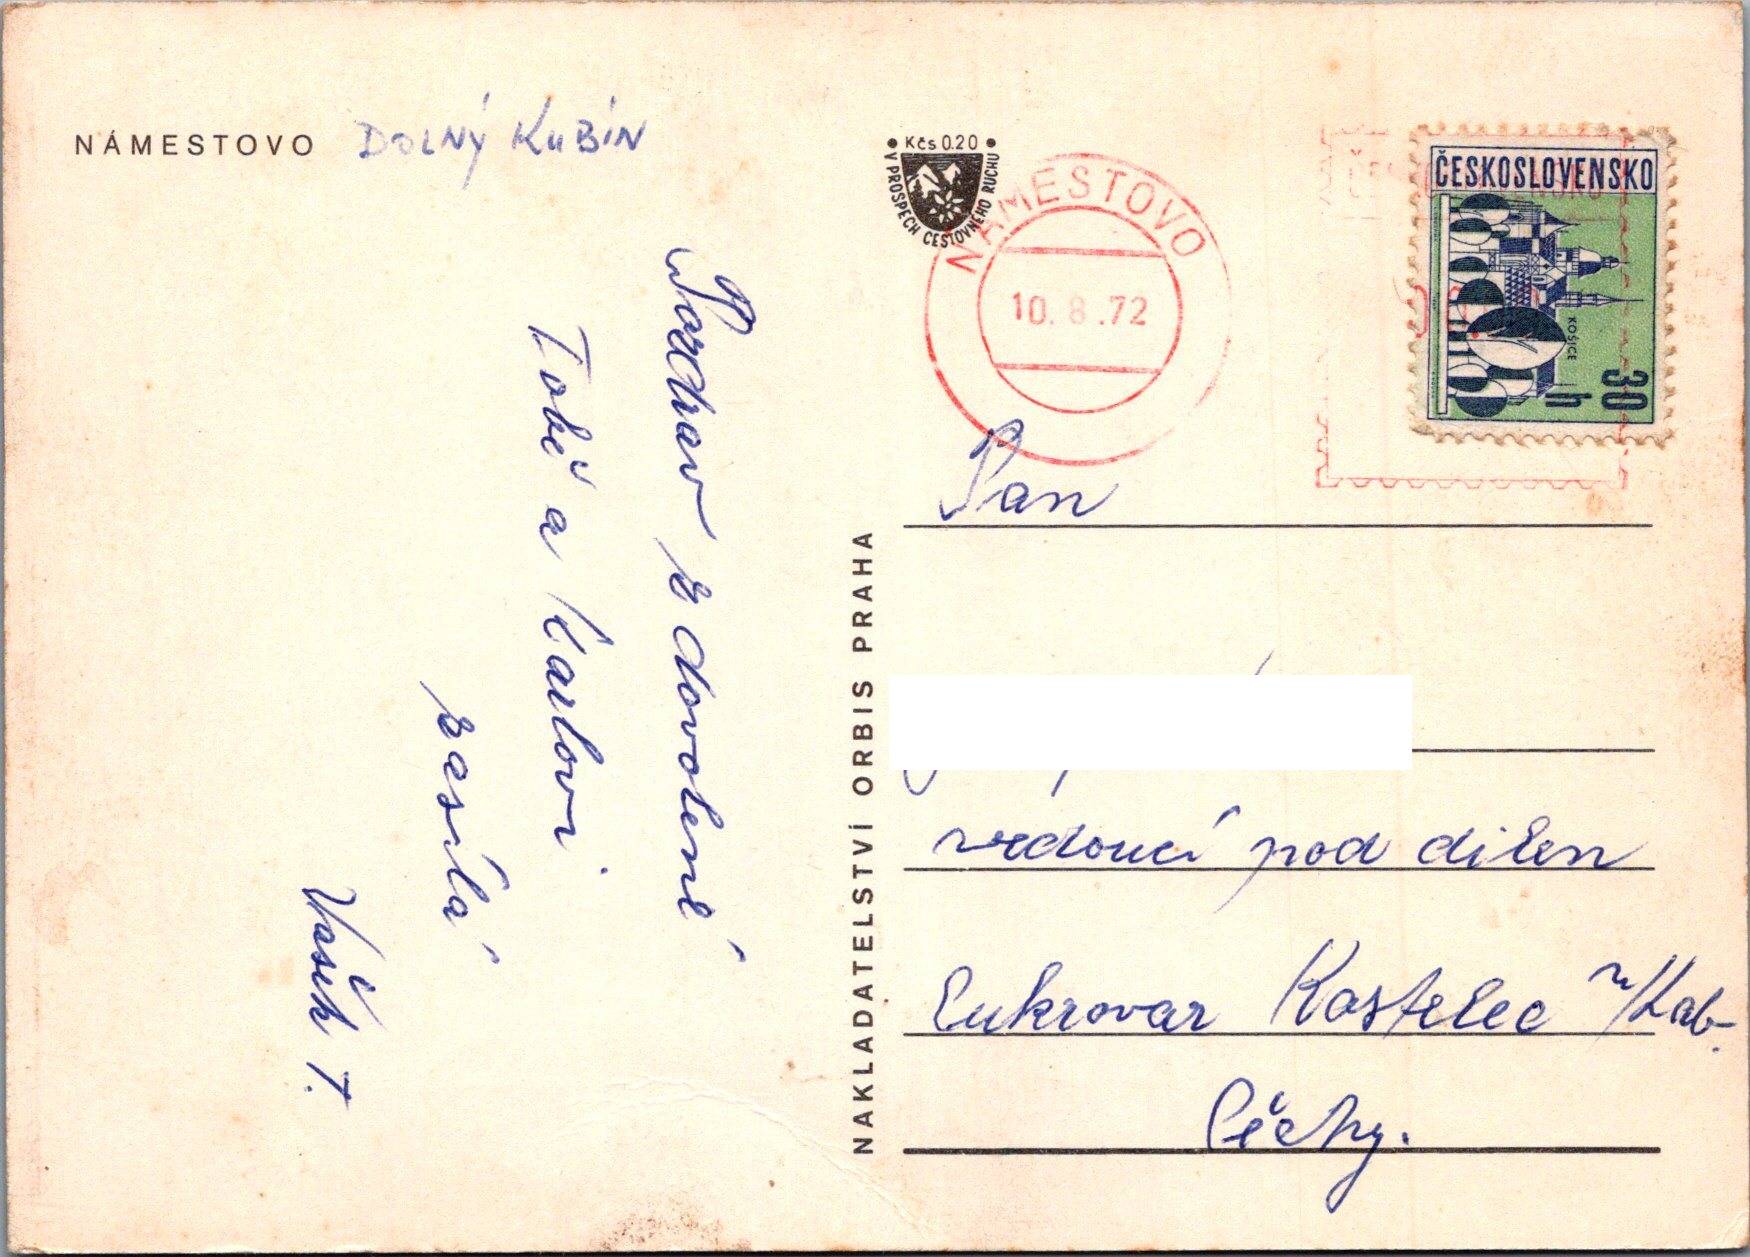 NÁMESTOVO DOLNÝ KUBÍN
Kčs 0.20
V PROSPECH CESTOVNÉHO RUCHU
NÁMESTOVO
10. 8. 72
ČESKOSLOVENSKO
KOŠICE
30 h
Pozdrav z dovolené
Tobě a Karlovi
zasílá
Vašík T.
NAKLADATELSTVÍ ORBIS PRAHA
Pan
vedoucí pod dílen
Cukrovar Kostelec n/Lab.
Čechy.